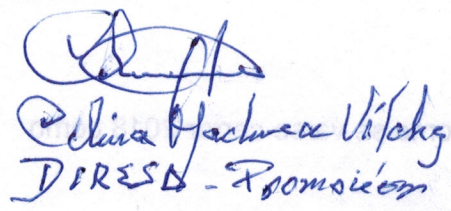 Edina Machaca Vilchez
DIRESA - Promoción